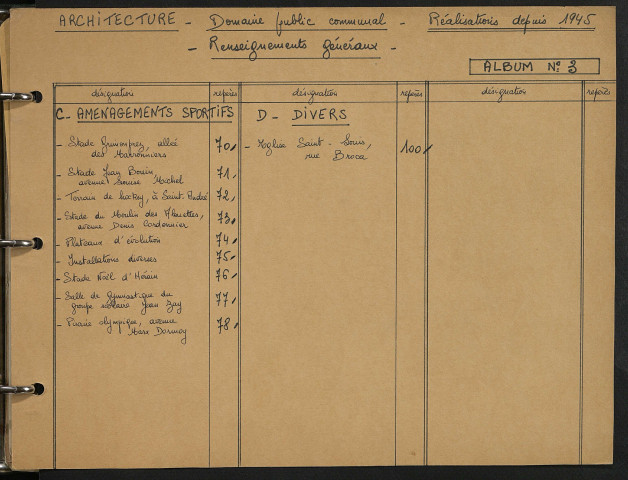 ARCHITECTURE - Domaine public communal - Réalisations depuis 1945
- Renseignements généraux -
ALBUM N° 3
désignation repères désignation repères désignation repères
C - AMENAGEMENTS SPORTIFS
- Stade Grimonprez, allée des Marronniers 70
- Stade Jean Bouin avenue Louise Michel 71
- Terrain de hockey, à Saint-André 72
- Stade du Moulin des Alouettes, avenue Denis Cordonnier 73
- Plateaux d'évolution 74
- Installations diverses 75
- Stade Noël d'Hérain 76
- Salle de Gymnastique du groupe scolaire Jean Zay 77
- Piscine olympique, avenue Marx Dormoy 78
D - DIVERS
- Eglise Saint-Louis, rue Broca 100